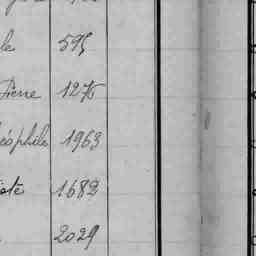 le 595
Pierre 1276
éophile 1963
iste 1682
2029